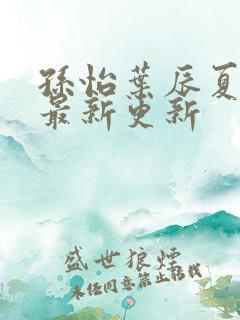 孫怡葉辰夏
最新更新
盛世狼煙
未经同意禁止转载